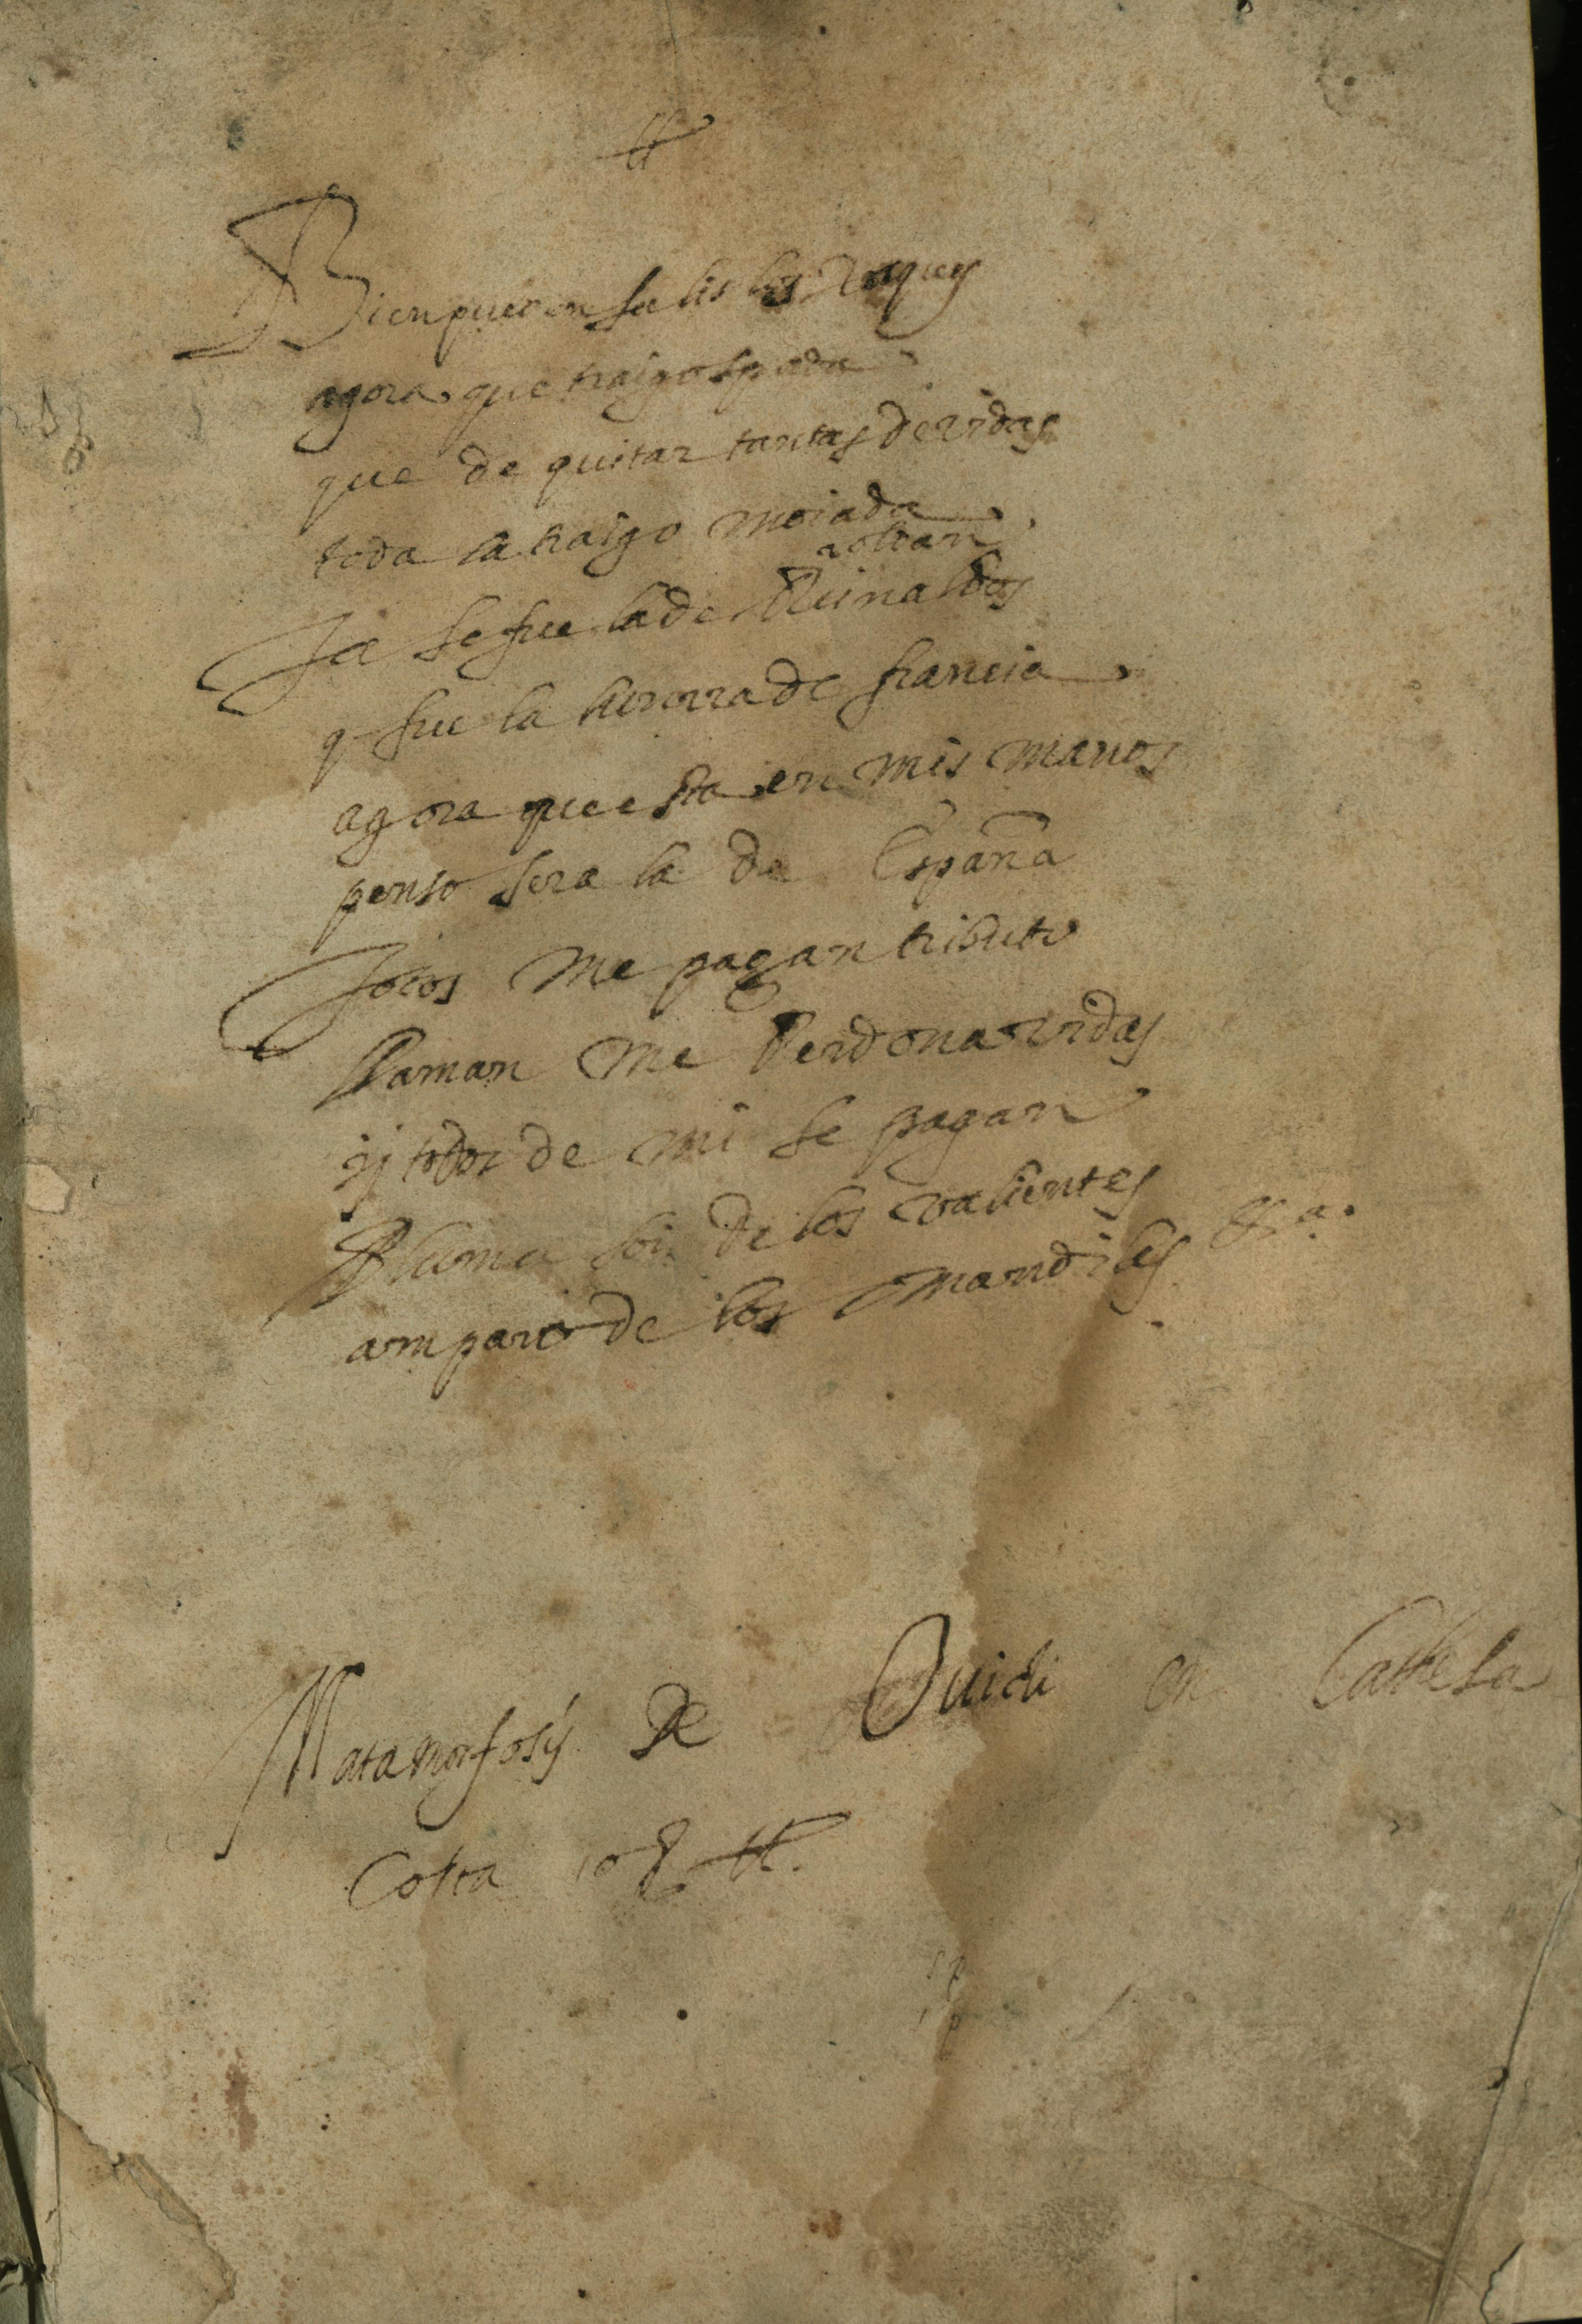 Bien pueden salir los
agora que traigo spada
que de quitar tantas de vidas
toda la traigo moiada
roldan
Ja se fue la de Reinaldos
q fue la hunrra de francia
agora que esta en mis manos
penso sera la de España
Jotos me pagan tributo
llaman me Perdonavidas
ij todos de mi se pagan
Pluma soi de los valientes
amparo de los mandiles &ª.
Matamorfosÿ de Ouidi en
Costa 10 8